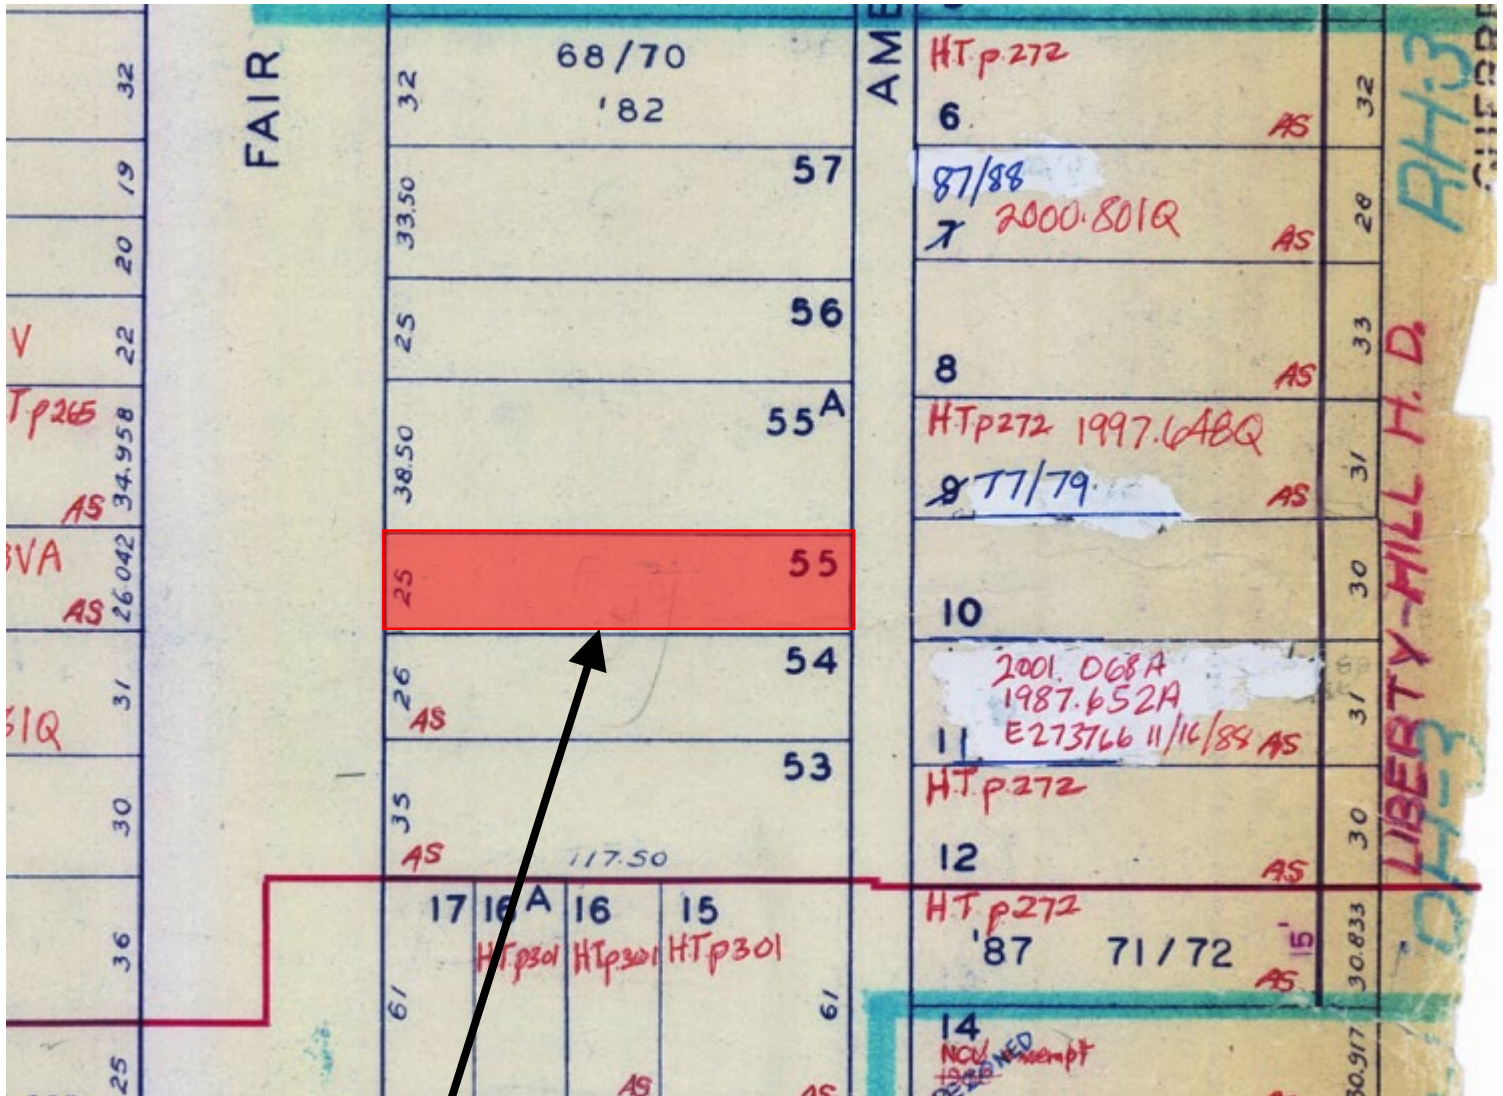 32
19
20
22
V
Tp265
34.958
AS
VA
26.042
AS
31
51Q
30
36
25
FAIR
68/70
'82
32
57
33.50
56
25
55A
38.50
55
25
54
26
AS
53
35
AS
117.50
17
16A
16
15
HTp301
HTp301
HTp301
61
61
AS
AS
AME
H.T. p. 272
6
AS
32
87/88
7
2000.801Q
AS
28
8
AS
33
H.T p272 1997.648Q
9 77/79
AS
31
10
30
2001. 068A
1987.652A
E273766 11/16/88 AS
11
31
H.T. p. 272
12
AS
30
H.T p272
'87 71/72
15'
AS
30.833
14
NCU exempt
REZONED
30.917
RH-3
LIBERTY-HILL H. D.
RH-3